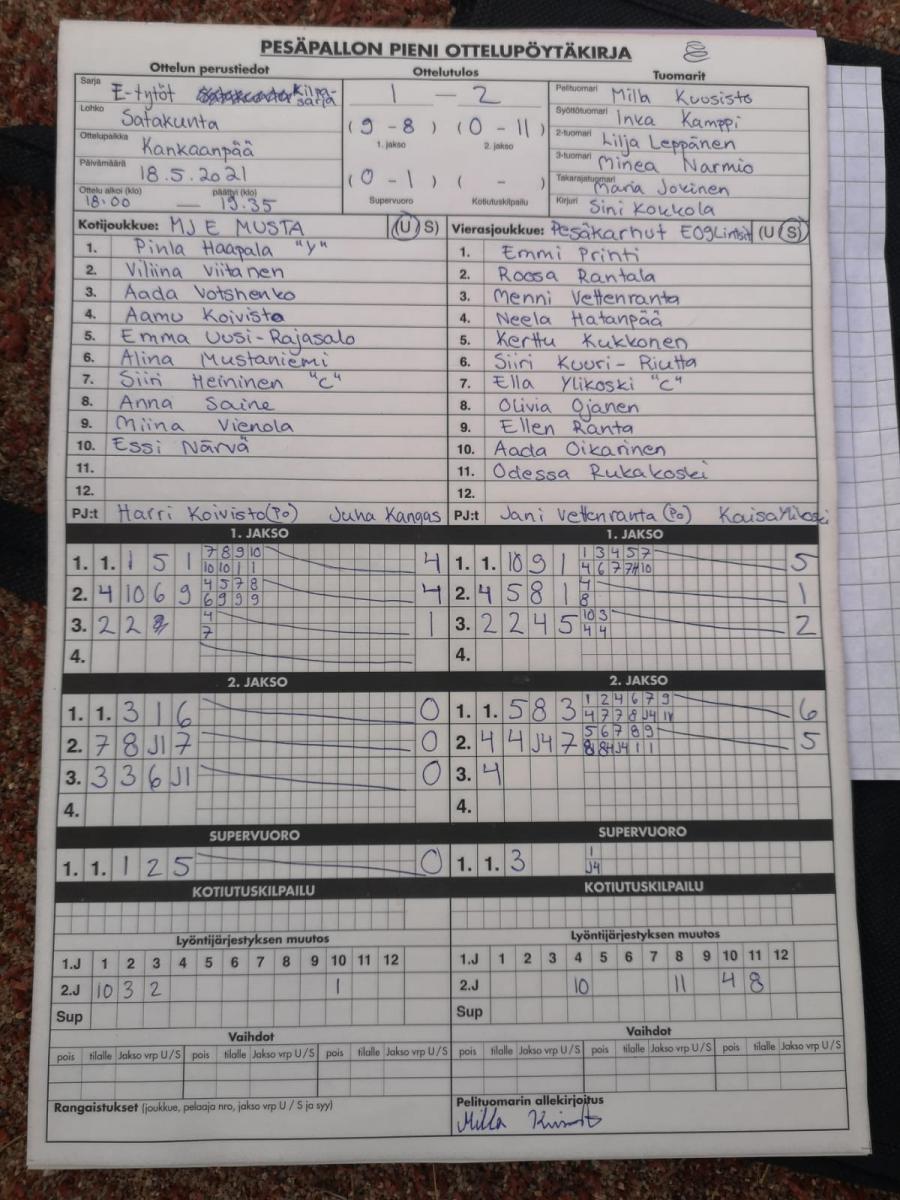 PESÄPALLON PIENI OTTELUPÖYTÄKIRJA
Ottelun perustiedot
Ottelutulos
Tuomarit
Sarja E-tytöt Kilpa-sarja
Lohko Satakunta
Ottelupaikka Kankaanpää
Päivämäärä 18.5.2021
Ottelu alkoi (klo) 18:00 — päättyi (klo) 19.35
1 — 2
(9 - 8) (0 - 11)
1. jakso 2. jakso
(0 - 1) ( - )
Supervuoro Kotiutuskilpailu
Pelituomari Milla Kuusisto
Syöttötuomari Inka Kamppi
2-tuomari Lilja Leppänen
3-tuomari Minea Narmio
Takarajatuomari Maria Jokinen
Kirjuri Sini Kokkola
Kotijoukkue: MJ E MUSTA (U S)
1. Pinla Haapala "Y"
2. Viliina Viitanen
3. Aada Votshenko
4. Aamu Koivisto
5. Emma Uusi-Rajasalo
6. Alina Mustaniemi
7. Siiri Heininen "C"
8. Anna Saine
9. Miina Vienola
10. Essi Närvä
11.
12.
PJ:t Harri Koivisto (Po) Juha Kangas
Vierasjoukkue: Pesäkarhut E09 (U S)
1. Emmi Printi
2. Roosa Rantala
3. Menni Vettenranta
4. Neela Hatanpää
5. Kerttu Kukkonen
6. Siiri Kuuri-Riutta
7. Ella Ylikoski "C"
8. Olivia Ojanen
9. Ellen Ranta
10. Aada Oikarinen
11. Odessa Rukakoski
12.
PJ:t Jani Vettenranta (Po) Kaisa Ylikoski
1. JAKSO
1. 1. 1 5 1 7 8 9 10 4
10 10 1 1
2. 4 10 6 9 4 5 7 8 4
6 9 9 9
3. 2 2 4 1
7
4.
1. JAKSO
1. 1. 10 9 1 1 3 4 5 7 5
4 6 7 10
2. 4 5 8 1 4 1
8
3. 2 2 4 5 10 3 2
4 4
4.
2. JAKSO
1. 1. 3 1 6 0
2. 7 8 J1 7 0
3. 3 3 6 J1 0
4.
2. JAKSO
1. 1. 5 8 3 1 2 4 6 7 9 6
4 7 7 8 J4
2. 4 4 J4 7 5 6 7 8 9 5
J4 1 1
3. 4
4.
SUPERVUORO
1. 1. 1 2 5 0
SUPERVUORO
1. 1. 3 1
J4
KOTIUTUSKILPAILU
KOTIUTUSKILPAILU
Lyöntijärjestyksen muutos
1.J 1 2 3 4 5 6 7 8 9 10 11 12
2.J 10 3 2 1
Sup
Lyöntijärjestyksen muutos
1.J 1 2 3 4 5 6 7 8 9 10 11 12
2.J 10 11 4 8
Sup
Vaihdot
pois tilalle Jakso vrp U/S pois tilalle Jakso vrp U/S pois tilalle Jakso vrp U/S
Vaihdot
pois tilalle Jakso vrp U/S pois tilalle Jakso vrp U/S pois tilalle Jakso vrp U/S
Rangaistukset (joukkue, pelaaja nro, jakso vrp U / S ja syy)
Pelituomarin allekirjoitus
Milla Kuusisto